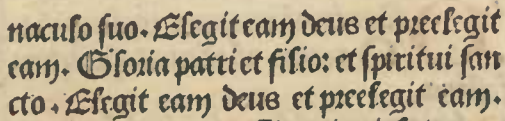 naculo suo. Elegit eam deus et preelegit
eam. Gloria patri et filio: et spiritui san
cto. Elegit eam deus et preelegit eam.